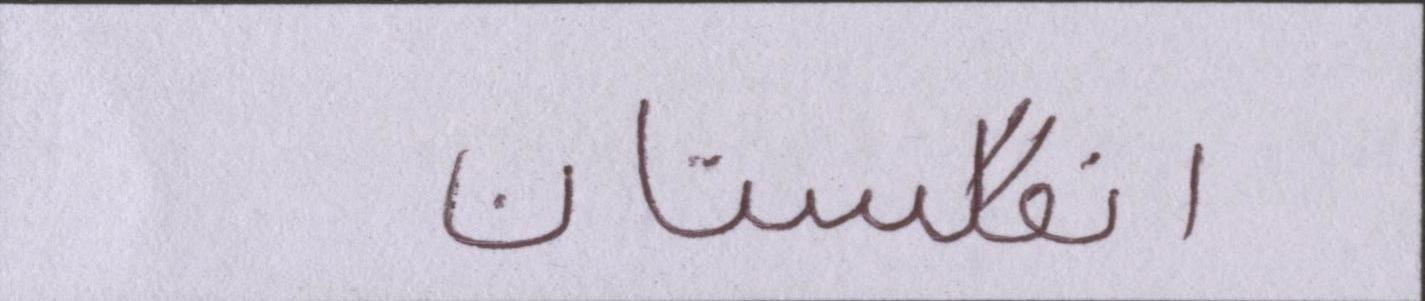 انگلستان